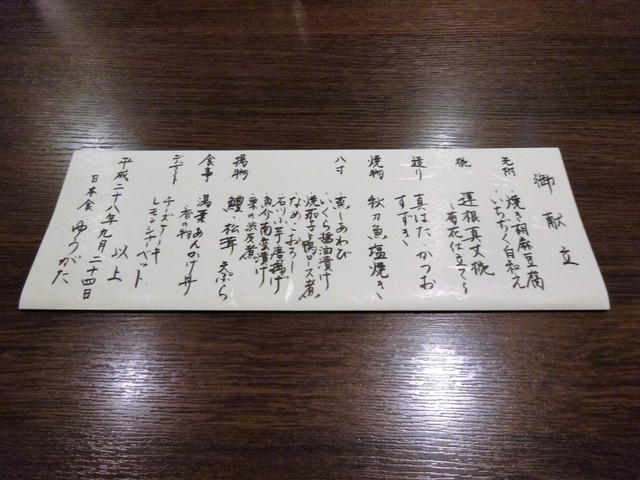 御献立
先附 焼き胡麻豆腐
いちぢく白和え
椀 蓮根真丈椀
菊花仕立て
造り 真はた かつお
すずき
焼物 秋刀魚塩焼き
八寸 煮あわび
いくら醤油漬け
焼茄子と鴨ロース煮
なめこおろし
石川小芋唐揚げ
魚介南蛮漬け
栗の渋皮煮
揚物 鱧 松茸 天ぷら
食事 湯葉あんかけ丼
香の物
デザート チーズケーキ
レモンシャーベット
以上
平成二十八年九月二十四日
日本食 ゆうがた